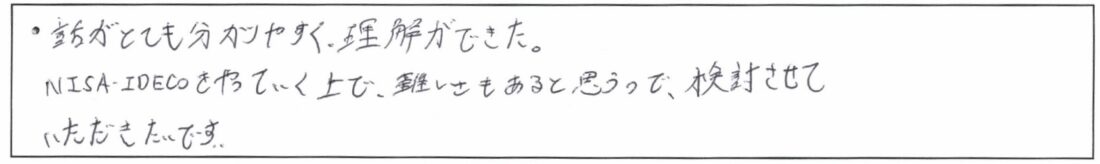 ・話がとても分かりやすく、理解ができた。
NISA・IDECOをやっていく上で、難しさもあると思うので、検討させて
いただきたいです。